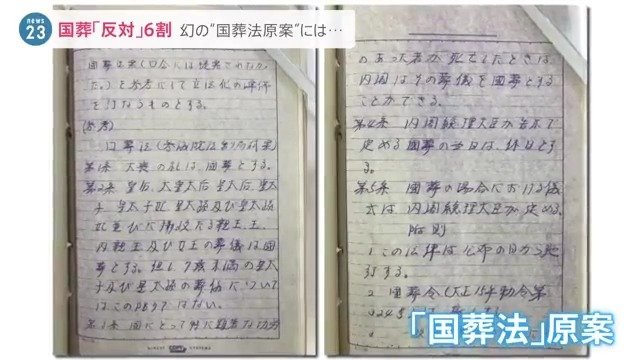 news
23
国葬「反対」6割 幻の“国葬法原案”には…
国葬法案(国会には提案されなかっ
た。)を参考にして立法化の準備
を行なうものとする。
(参考)
国葬法(参議院法制局起案)
第1条 大喪の礼は、国葬とする。
第2条 皇后、太皇太后、皇太后、皇太
子、皇太子妃、皇太孫及び皇太孫
妃並びに摂政たる親王、王、
内親王及び女王の葬儀は国
葬とする。但し7歳未満の皇太
子及び皇太孫の葬儀については
この限りではない。
第3条 国にとって特に顕著な功労
のあった者が死亡したときは、
内閣はその葬儀を国葬とする
ことができる。
第4条 内閣総理大臣が告示で
定める国葬の当日は、休日とす
る。
第5条 国葬の場合における儀
式は、内閣総理大臣が定める。
附則
1 この法律は公布の日から施
行する。
2 国葬令(大正15年勅令第
324号
「国葬法」原案